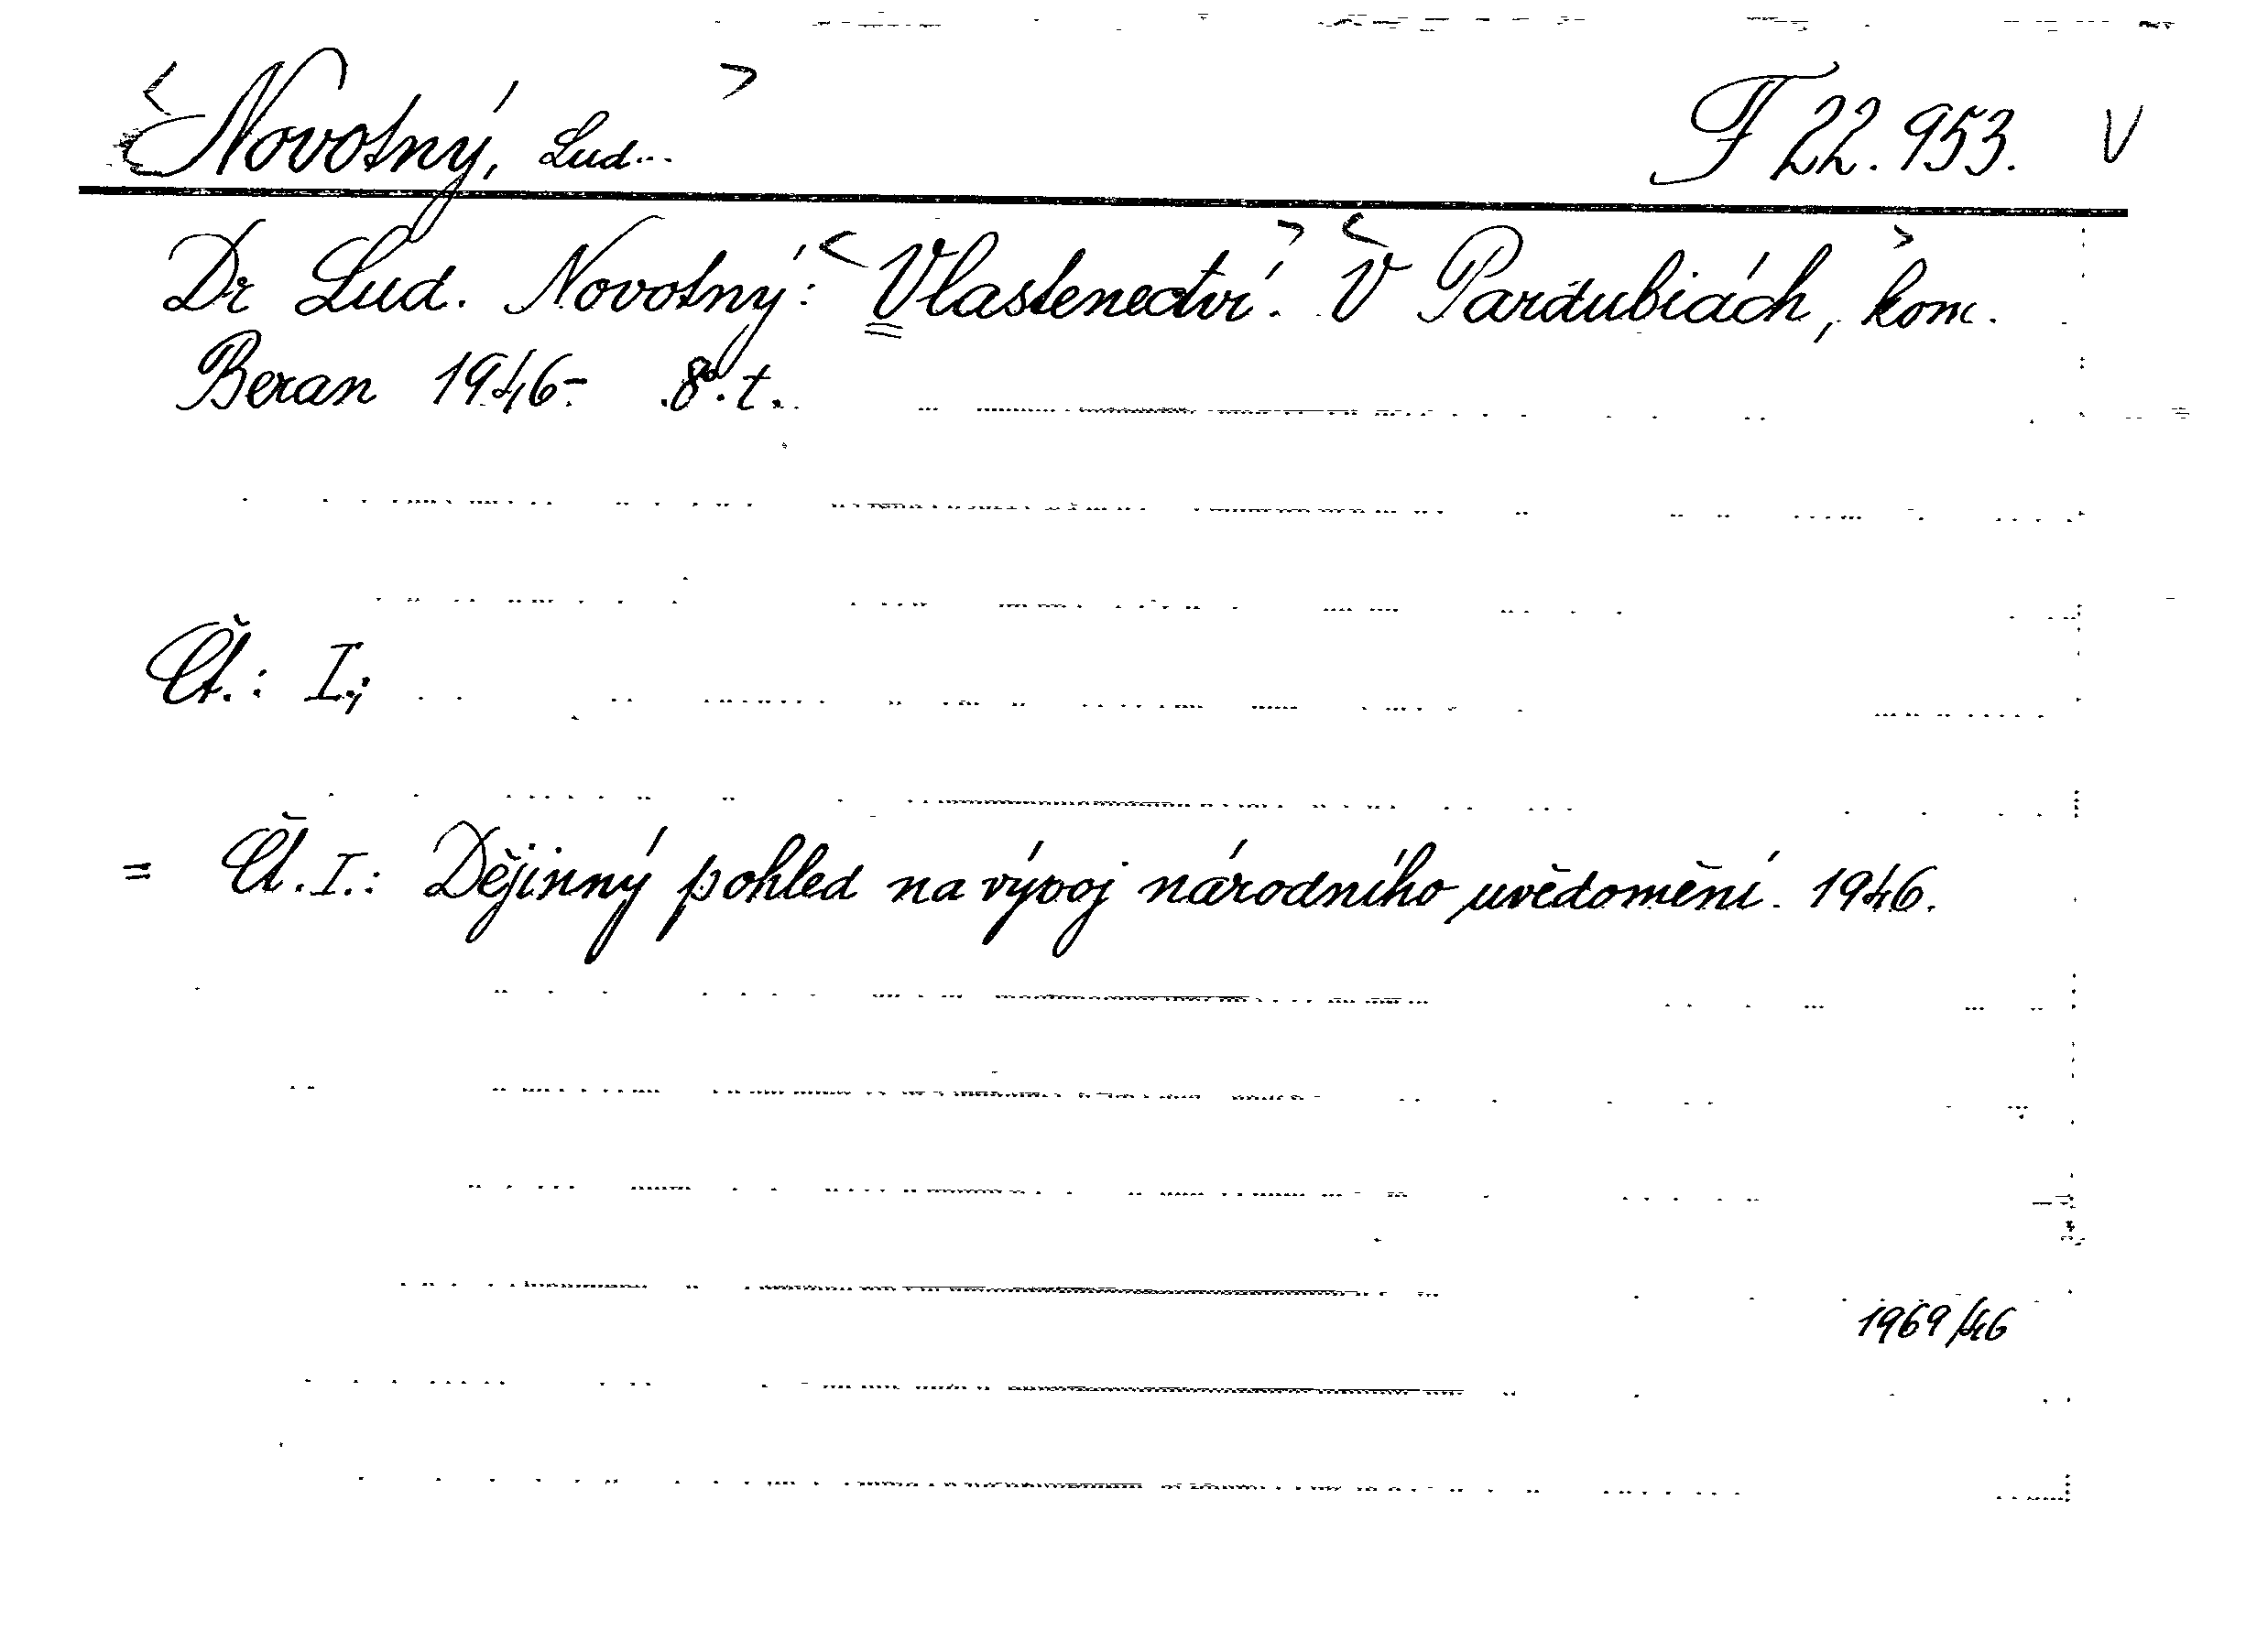 <Novotný, Lud...> F 22.953. V
Dr Lud. Novotný: <Vlastenectví.> <V Pardubicách,> kom.
Beran 1946- 8°. t.
Čt.: I.;
= Čt. I.: Dějinný pohled na vývoj národního uvědomění. 1946.
1969/46